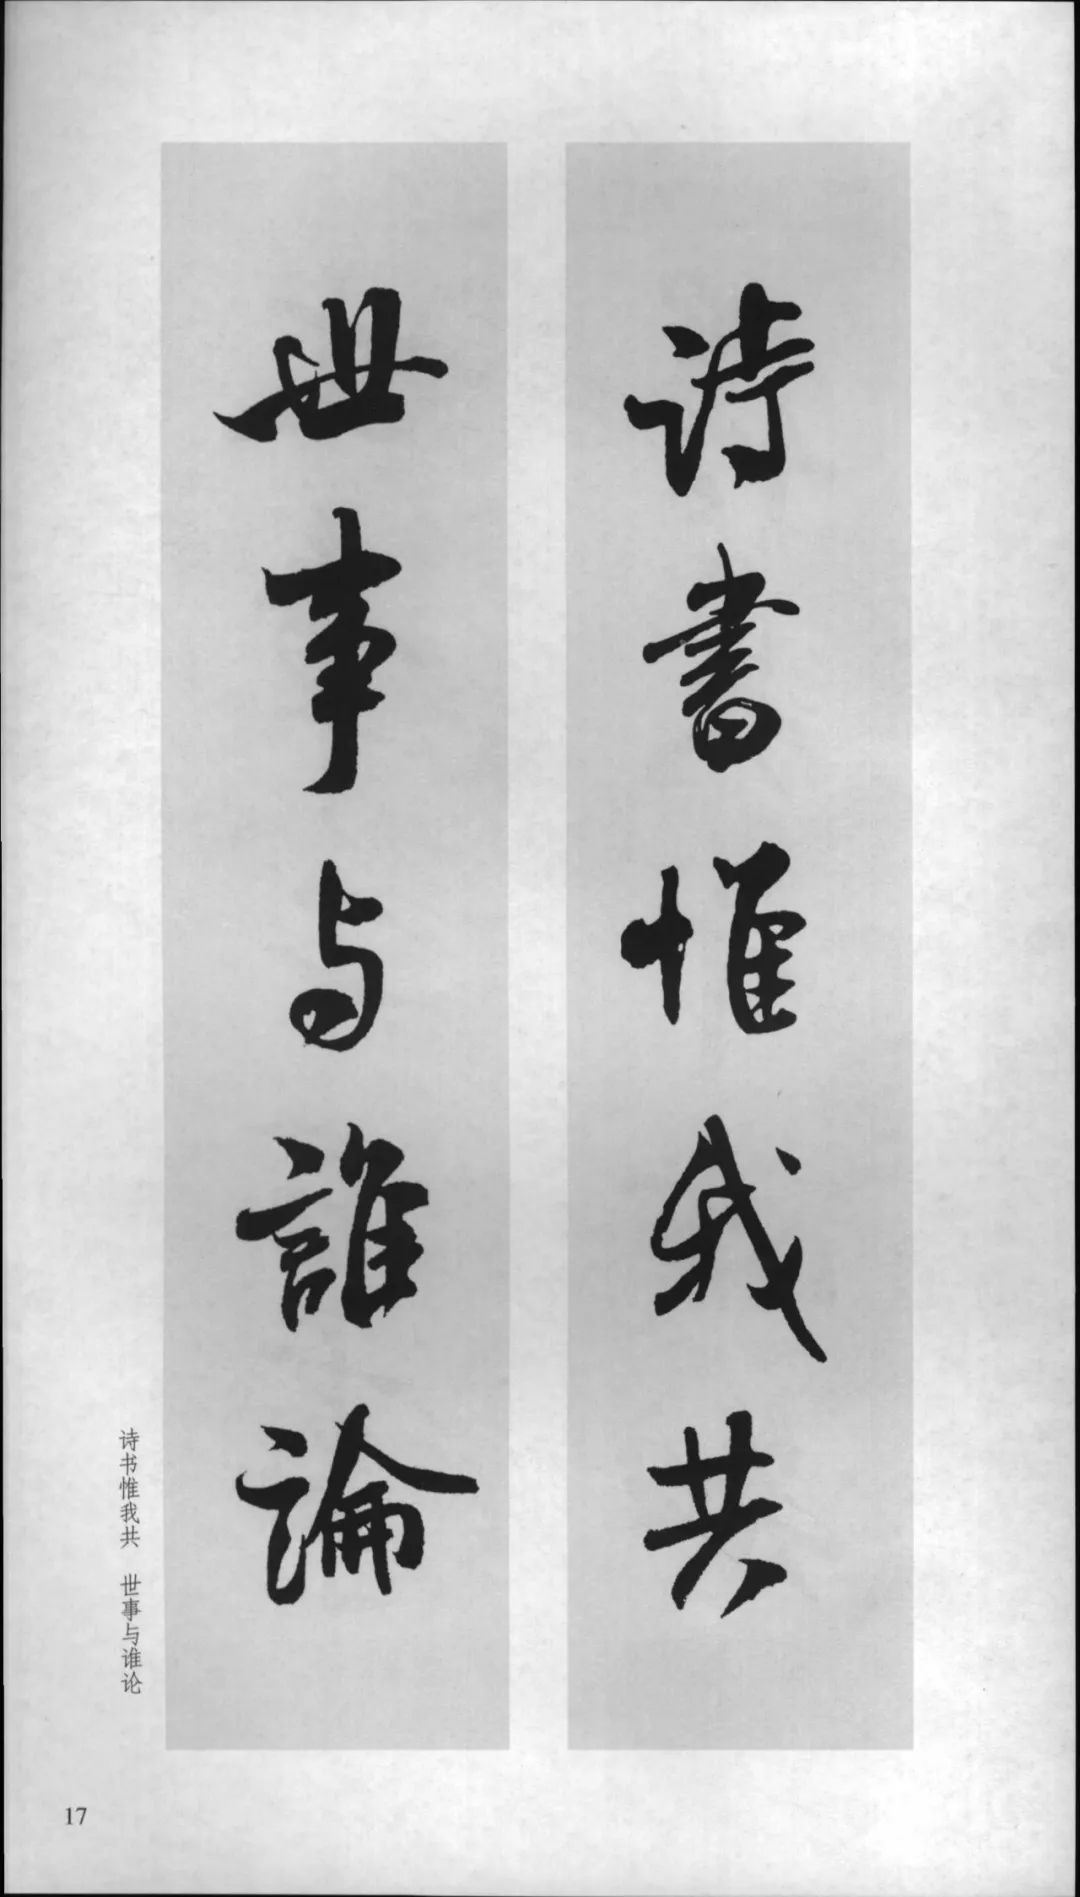 詩書惟我共
世事与誰論
诗书惟我共 世事与谁论
17